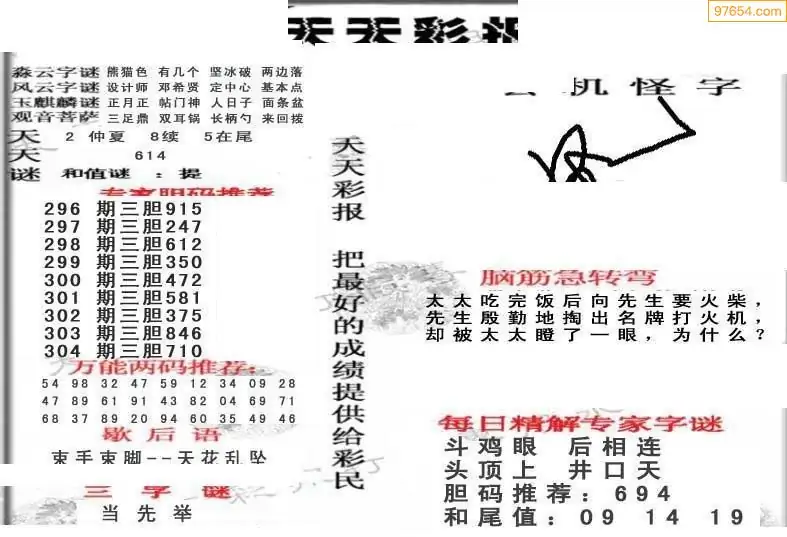 97654.com
天天彩报
淼云字谜 熊猫色 有几个 坚冰破 两边落
风云字谜 设计师 邓希贤 定中心 基本点
玉麒麟谜 正月正 帖门神 人日子 面条盆
观音菩萨 三足鼎 双耳锅 长柄勺 来回拨
天 2 仲夏 8续 5在尾
天 614
谜 和值谜 : 提
专家胆码推荐
296 期三胆915
297 期三胆247
298 期三胆612
299 期三胆350
300 期三胆472
301 期三胆581
302 期三胆375
303 期三胆846
304 期三胆710
万能两码推荐:
54 98 32 47 59 12 34 09 28
47 89 61 91 43 82 04 69 71
68 37 89 20 94 60 35 49 46
歇后语
束手束脚--天花乱坠
三字谜
当先举
天天彩报 把最好的成绩提供给彩民
机怪字
脑筋急转弯
太太吃完饭后向先生要火柴，
先生殷勤地掏出名牌打火机，
却被太太瞪了一眼，为什么？
每日精解专家字谜
斗鸡眼 后相连
头顶上 井口天
胆码推荐: 694
和尾值: 09 14 19